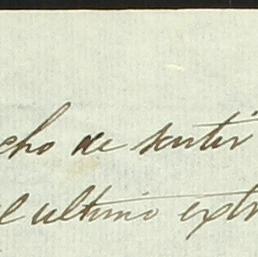 cho de sentir
el ultimo extr